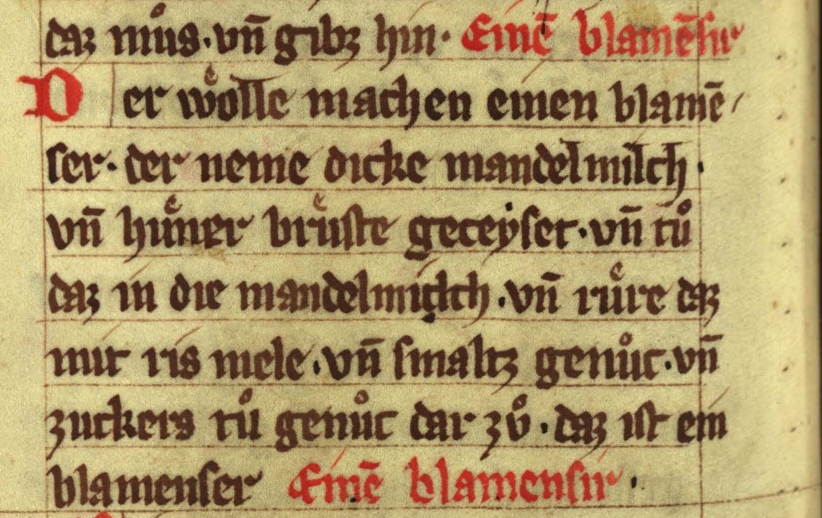 daz můs·vñ gibz hin· Einē blamēsir
Der wo&#868;lle machen einen blamē/
ser·der neme dicke mandelmilch·
vñ huͤner bruͤste geceyset·vñ tů
daz in die mandelmilch·vñ ruͤre daz
mit ris mele·vñ smaltz genůc·vñ
zuckers tů genůc dar zů·daz ist ein
blamenser Einē blamensir·